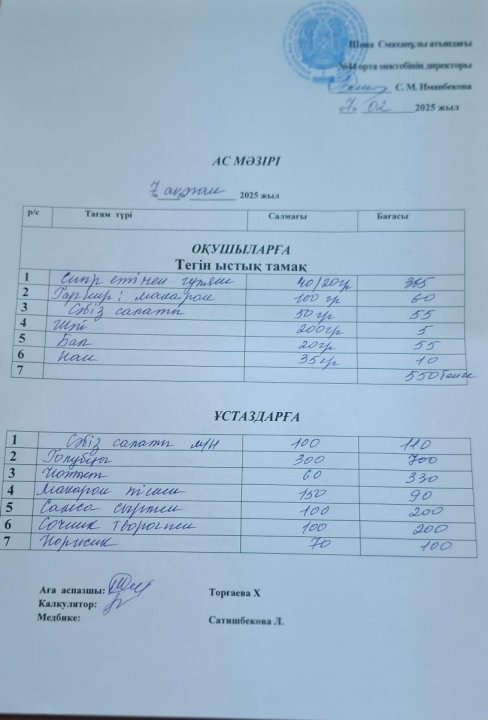 Шона Смаханұлы атындағы
№44 орта мектебінің директоры
С. М. Иманбекова
"7" 02 2025 жыл
АС МӘЗІРІ
7 ақпан 2025 жыл
р/с Тағам түрі Салмағы Бағасы
ОҚУШЫЛАРҒА
Тегін ыстық тамақ
1 Сиыр етінен гуляш 40/20гр 365
2 Гарнир: макарон 100 гр 60
3 Сәбіз салаты 50 гр 55
4 Шәй 200гр 5
5 Бал 20гр 55
6 Нан 35гр 10
7 550 теңге
ҰСТАЗДАРҒА
1 Сәбіз салаты м/н 100 110
2 Голубцы 300 700
3 Котлет 60 330
4 Макарон 150 90
5 Самса 100 200
6 Сочник творогпен 100 200
7 70 100
Аға аспазшы: Торғаева Х
Калкулятор:
Медбике: Сатишбекова Л.